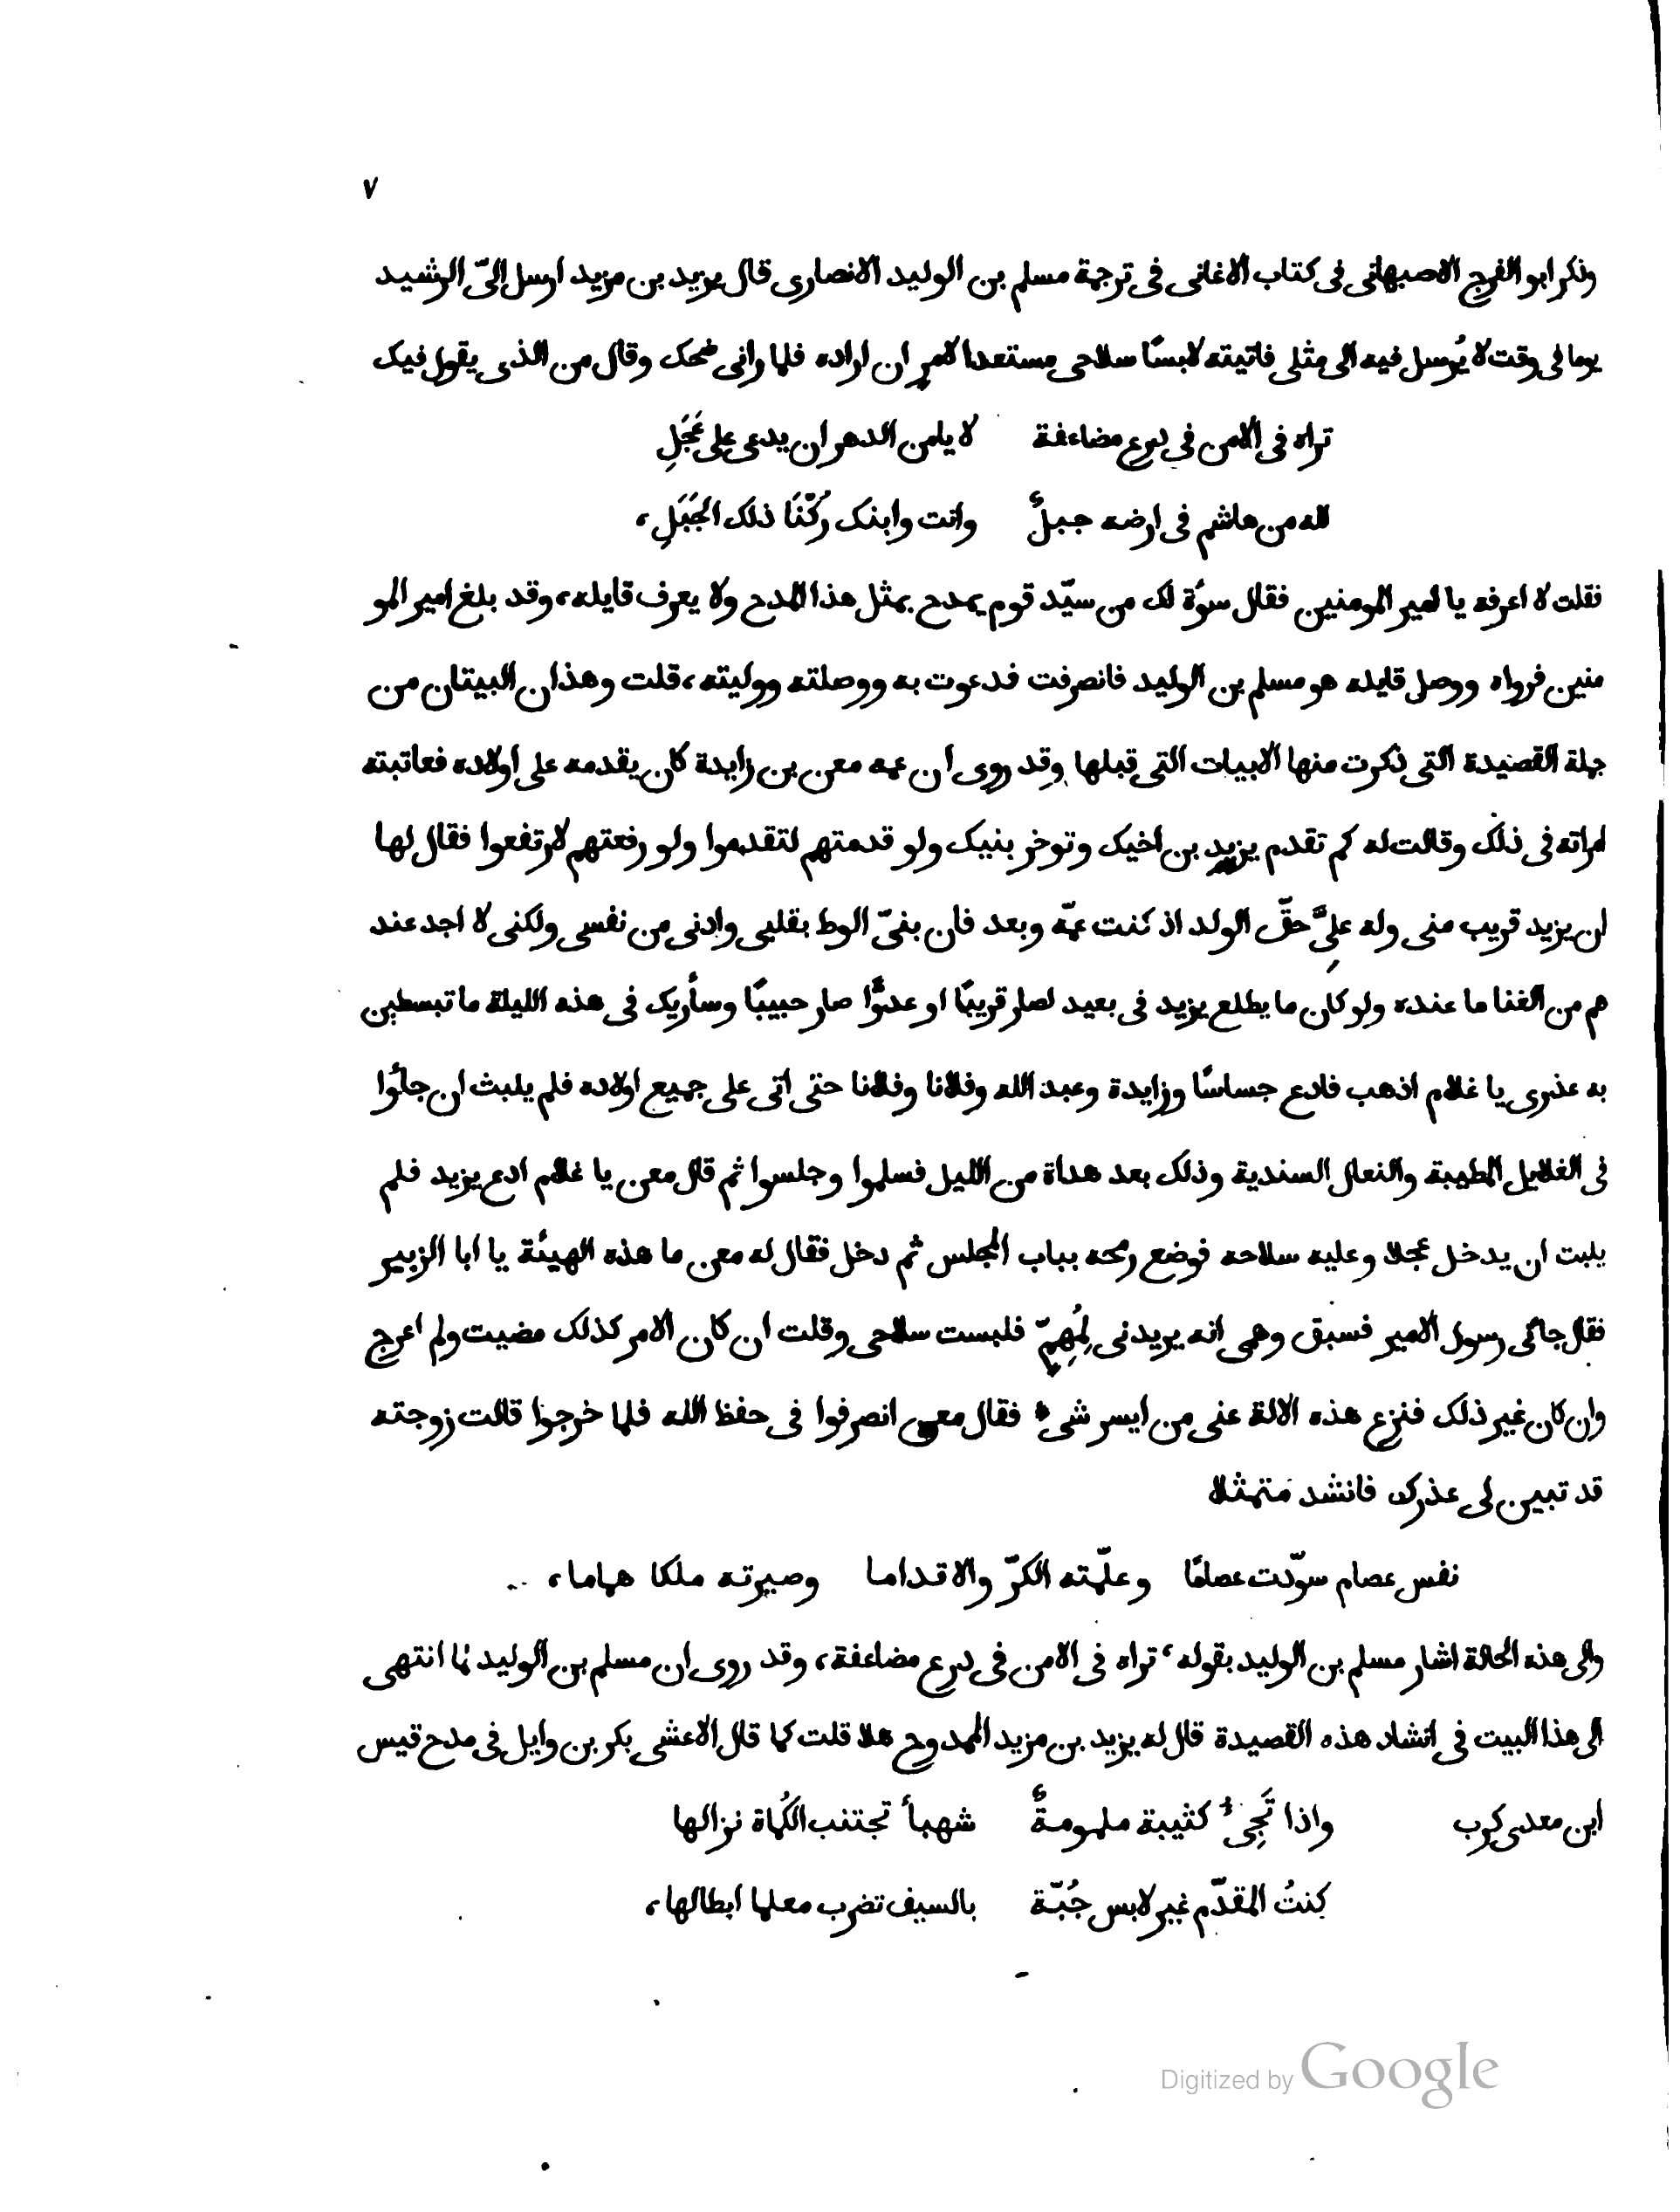 ٧
وذكر ابو الفرج الاصبهانى فى كتاب الاغانى فى ترجمة مسلم بن الوليد الانصارى قال يزيد بن مزيد ارسل الىّ الرشيد
يوما فى وقت لا يُرسل فيه الى مثلى فاتيته لابسًا سلاحى مستعدا لامرٍ ان اراده فلما رانى ضحك وقال من الذى يقول فيك
تراه فى الامن فى درع مضاعفة لا يامن الدهر ان يدعى على عَجَلِ
لله من هاشم فى ارضه جبلٌ وانت وابنك رُكْنَا ذلك الجَبَلِ،
فقلت لا اعرفه يا امير المومنين فقال سوءَة لك من سيّد قوم يمدح بمثل هذا المدح ولا يعرف قايله، وقد بلغ امير المو
منين فرواه ووصل قايله هو مسلم بن الوليد فانصرفت فدعوت به ووصلته ووليته، قلت وهذان البيتان من
جملة القصيدة التى ذكرت منها الابيات التى قبلها وقد روى ان عمه معن بن زايدة كان يقدمه على اولاده فعاتبته
امراته فى ذلك وقالت له كم تقدم يزيد بن اخيك وتوخر بنيك ولو قدمتهم لتقدموا ولو رفعتهم لارتفعوا فقال لها
ان يزيد قريب منى وله علىَّ حقّ الولد اذ كنت عمّه وبعد فان بنىّ الوط بقلبى وادنى من نفسى ولكنى لا اجد عند
هم من الغنا ما عنده ولو كان ما يطلع يزيد فى بعيد لصار قريبًا او عدوًّا صار حبيبًا وسأريك فى هذه الليلة ما تبسطين
به عذرى يا غلام اذهب فادع جساسًا وزايدة وعبد الله وفلانا وفلانا حتى اتى على جميع اولاده فلم يلبث ان جاؤا
فى الغلايل المطيبة والنعال السندية وذلك بعد هداة من الليل فسلموا وجلسوا ثم قال معن يا غلام ادع يزيد فلم
يلبت ان يدخل عجلا وعليه سلاحه فوضع رمحه بباب المجلس ثم دخل فقال له معن ما هذه الهيئة يا ابا الزبير
فقال جاءَنى رسول الامير فسبق وهمى انه يريدنى لِمُهِمّ فلبست سلاحى وقلت ان كان الامر كذلك مضيت ولم اعرج
وان كان غير ذلك فنزع هذه الالة عنى من ايسر شىء فقال معن انصرفوا فى حفظ الله فلما خرجوا قالت زوجته
قد تبين لى عذرك فانشد متمثلا
نفس عصام سوّدت عصامًا وعلّمته الكرّ والاقداما وصيرته ملكا هماما،
والى هذه الحالة اشار مسلم بن الوليد بقوله، تراه فى الامن فى درع مضاعفة، وقد روى ان مسلم بن الوليد لما انتهى
الى هذا البيت فى انشاد هذه القصيدة قال له يزيد بن مزيد الممدوح هلا قلت كما قال الاعشى بكر بن وايل فى مدح قيس
ابن معدى كرب واذا تَجِىءُ كثيبة ملمومةٌ شهبأ تجتنب الكُماة نزالها
كنتُ المقدّم غير لابس جُبّة بالسيف تضرب معلما ابطالها،
Digitized by Google